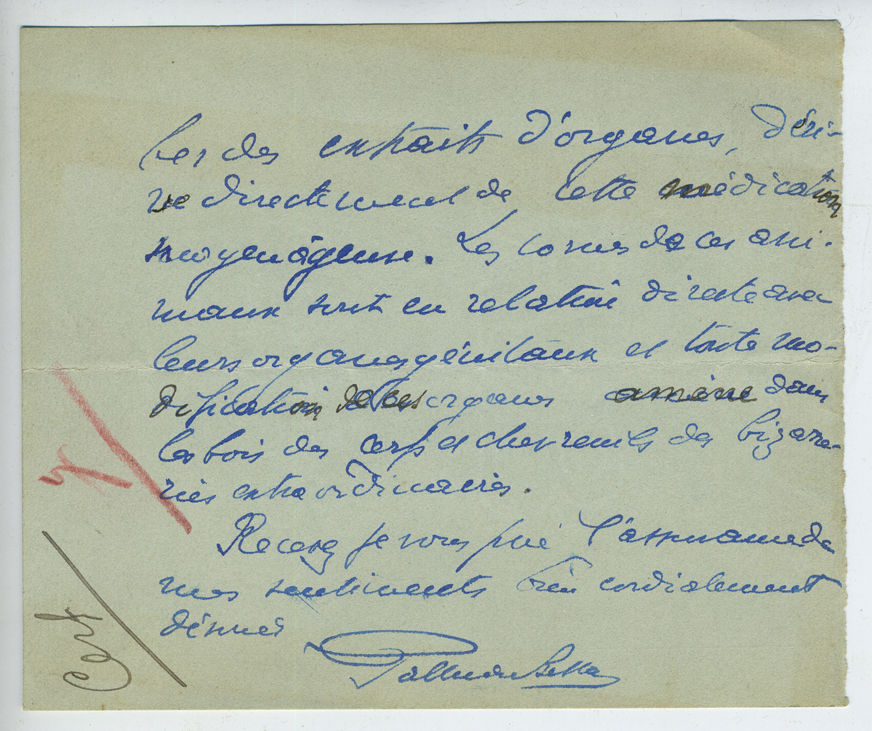 les des extraits d'organes, déri-
ve directement de cette médication
moyenâgeuse. Les cornes de ces ani-
maux sont en relation directe avec
leurs organes génitaux et toute mo-
dification de ces organes amène dans
les bois des cerfs et chevreuils des bizarre-
ries extraordinaires.
Recevez je vous prie l'assurance de
mes sentiments très cordialement
dévoués
Cerf